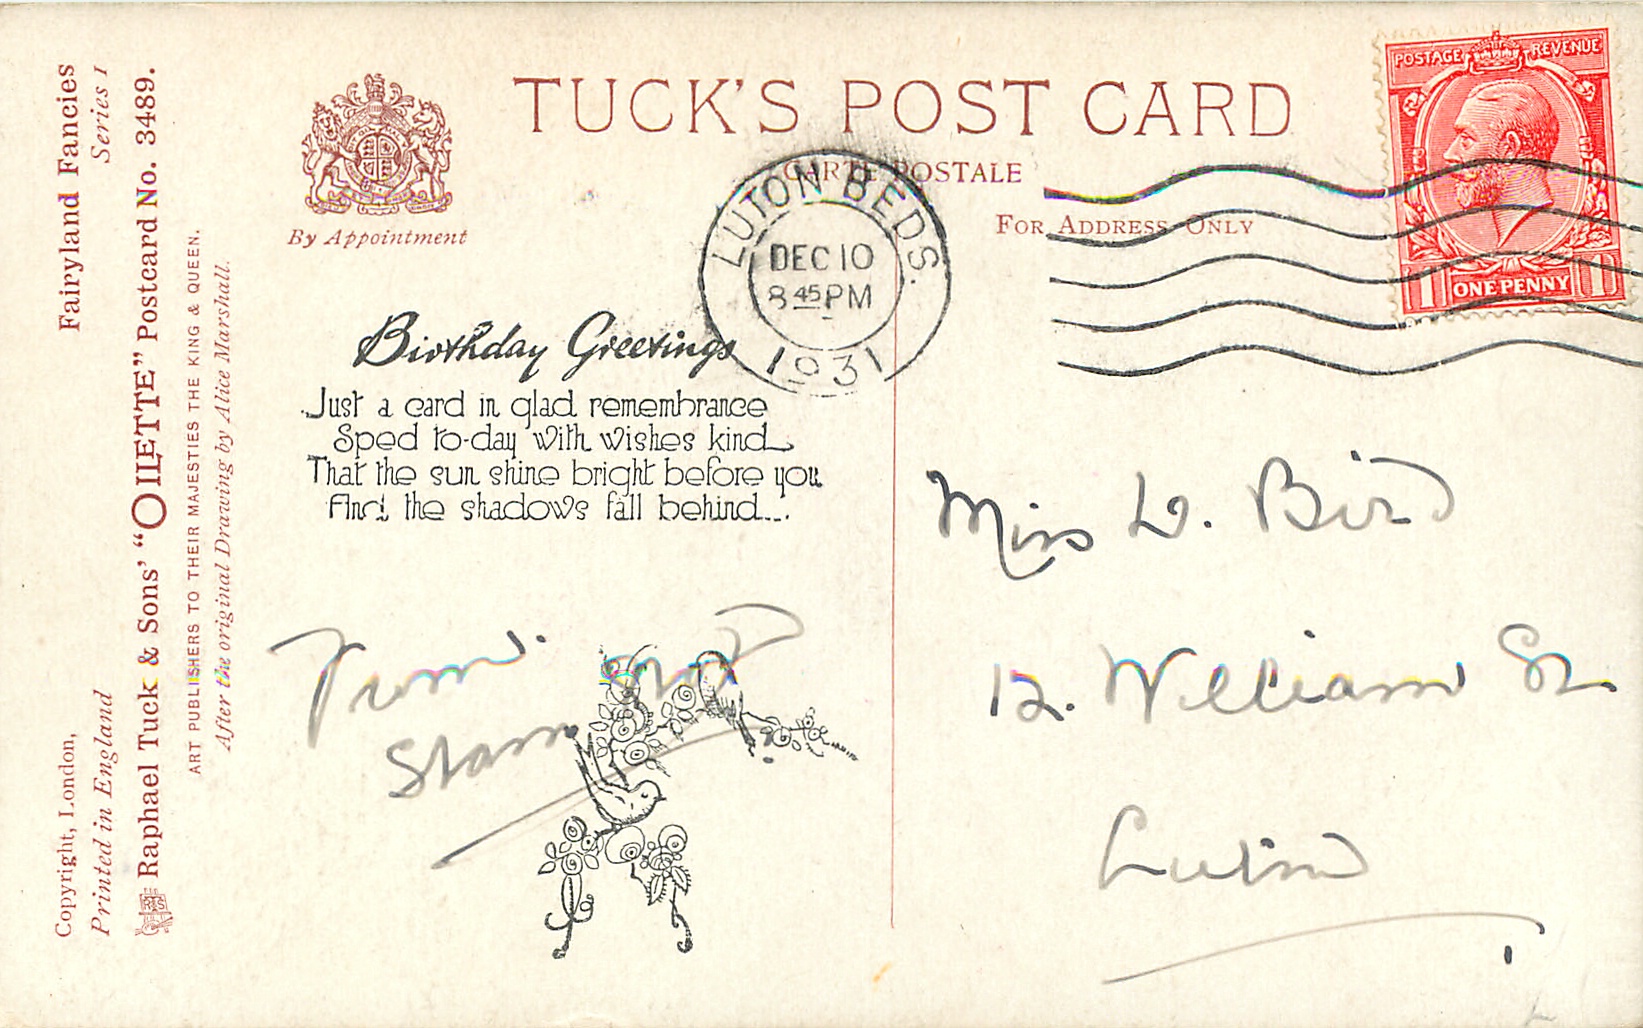 Fairyland Fancies
Series I
Copyright, London,
Printed in England
Raphael Tuck & Sons' "OILETTE" Postcard No. 3489.
ART PUBLISHERS TO THEIR MAJESTIES THE KING & QUEEN.
After the original Drawing by Alice Marshall.
By Appointment
TUCK'S POST CARD
CARTE POSTALE
FOR ADDRESS ONLY
POSTAGE REVENUE
1 ONE PENNY 1
LUTON BEDS.
DEC 10
8 45 PM
1931
Birthday Greetings
Just a card in glad remembrance
Sped to-day with wishes kind
That the sun shine bright before you
And the shadows fall behind...
From
Stan
Miss D. Bird
12. William St.
Luton